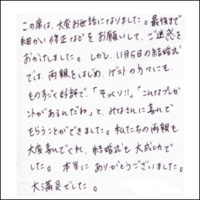 この度は、大変お世話になりました。最後まで
細かい修正などをお願いして、ご迷惑を
おかけしました。しかし、11月5日の結婚式
では、両親をはじめ、ゲストの方々にも
ものすごく好評で、「そっくり!!」「これはプレゼ
ントがあるんだね」と、みなさんに喜んで
もらうことができました。私たちの両親も
大変喜んでくれ、結婚式も大成功で
した。本当にありがとうございました。
大満足でした。